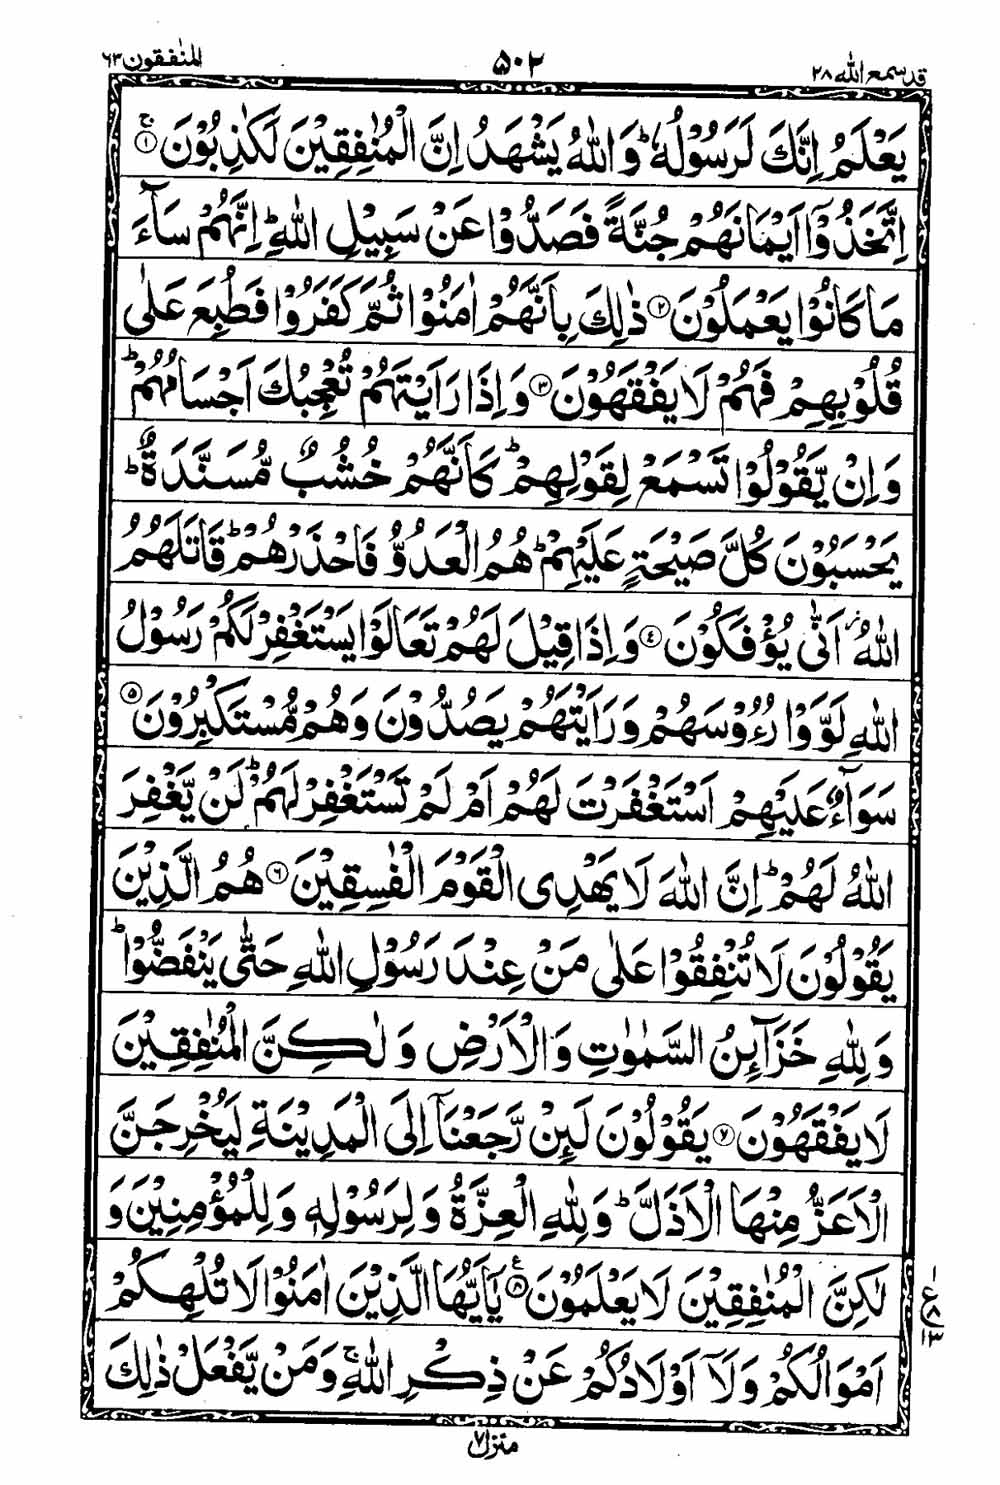 قد سمع الله ۲۸
۵۰۲
المنٰفقون ۶۳
يَعْلَمُ اِنَّكَ لَرَسُوْلُهٗ ؕ وَاللّٰهُ يَشْهَدُ اِنَّ الْمُنٰفِقِيْنَ لَكٰذِبُوْنَ ۚ ﴿۱﴾
اِتَّخَذُوْۤا اَيْمَانَهُمْ جُنَّةً فَصَدُّوْا عَنْ سَبِيْلِ اللّٰهِ ؕ اِنَّهُمْ سَآءَ
مَا كَانُوْا يَعْمَلُوْنَ ﴿۲﴾ ذٰلِكَ بِاَنَّهُمْ اٰمَنُوْا ثُمَّ كَفَرُوْا فَطُبِعَ عَلٰى
قُلُوْبِهِمْ فَهُمْ لَا يَفْقَهُوْنَ ﴿۳﴾ وَاِذَا رَاَيْتَهُمْ تُعْجِبُكَ اَجْسَامُهُمْ ؕ
وَاِنْ يَّقُوْلُوْا تَسْمَعْ لِقَوْلِهِمْ ؕ كَاَنَّهُمْ خُشُبٌ مُّسَنَّدَةٌ ؕ
يَحْسَبُوْنَ كُلَّ صَيْحَةٍ عَلَيْهِمْ ؕ هُمُ الْعَدُوُّ فَاحْذَرْهُمْ ؕ قَاتَلَهُمُ
اللّٰهُ ؗ اَنّٰى يُؤْفَكُوْنَ ﴿۴﴾ وَاِذَا قِيْلَ لَهُمْ تَعَالَوْا يَسْتَغْفِرْ لَكُمْ رَسُوْلُ
اللّٰهِ لَوَّوْا رُءُوْسَهُمْ وَرَاَيْتَهُمْ يَصُدُّوْنَ وَهُمْ مُّسْتَكْبِرُوْنَ ﴿۵﴾
سَوَآءٌ عَلَيْهِمْ اَسْتَغْفَرْتَ لَهُمْ اَمْ لَمْ تَسْتَغْفِرْ لَهُمْ ؕ لَنْ يَّغْفِرَ
اللّٰهُ لَهُمْ ؕ اِنَّ اللّٰهَ لَا يَهْدِى الْقَوْمَ الْفٰسِقِيْنَ ﴿۶﴾ هُمُ الَّذِيْنَ
يَقُوْلُوْنَ لَا تُنْفِقُوْا عَلٰى مَنْ عِنْدَ رَسُوْلِ اللّٰهِ حَتّٰى يَنْفَضُّوْا ؕ
وَلِلّٰهِ خَزَآئِنُ السَّمٰوٰتِ وَالْاَرْضِ وَلٰكِنَّ الْمُنٰفِقِيْنَ
لَا يَفْقَهُوْنَ ﴿۷﴾ يَقُوْلُوْنَ لَئِنْ رَّجَعْنَاۤ اِلَى الْمَدِيْنَةِ لَيُخْرِجَنَّ
الْاَعَزُّ مِنْهَا الْاَذَلَّ ؕ وَلِلّٰهِ الْعِزَّةُ وَلِرَسُوْلِهٖ وَلِلْمُؤْمِنِيْنَ وَ
لٰكِنَّ الْمُنٰفِقِيْنَ لَا يَعْلَمُوْنَ ﴿۸﴾ ع يٰۤاَيُّهَا الَّذِيْنَ اٰمَنُوْا لَا تُلْهِكُمْ
اَمْوَالُكُمْ وَلَاۤ اَوْلَادُكُمْ عَنْ ذِكْرِ اللّٰهِ ۚ وَمَنْ يَّفْعَلْ ذٰلِكَ
منزل ۷